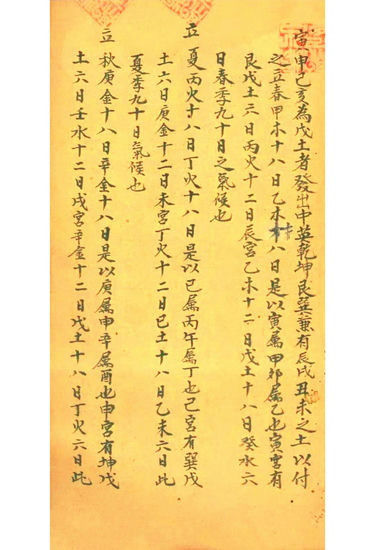 寅申己亥為戊土者發出中英乾坤艮巽兼有辰戌丑未之土以付
之立春甲木十八日乙木十八日是以寅属甲卯属乙也寅宮有
艮戊土六日丙火十二日辰宮乙木十二日戊土十八日癸水六
日春季九十日之氣候也
立夏丙火十八日丁火十八日是以巳属丙午属丁也巳宮有巽戊
土六日庚金十二日未宮丁火十二日巳土十八日乙未六日此
夏季九十日氣候也
立秋庚金十八日辛金十八日是以庚属申辛属酉也申宮有坤戊
土六日壬水十二日戌宮辛金十二日戊土十八日丁火六日此